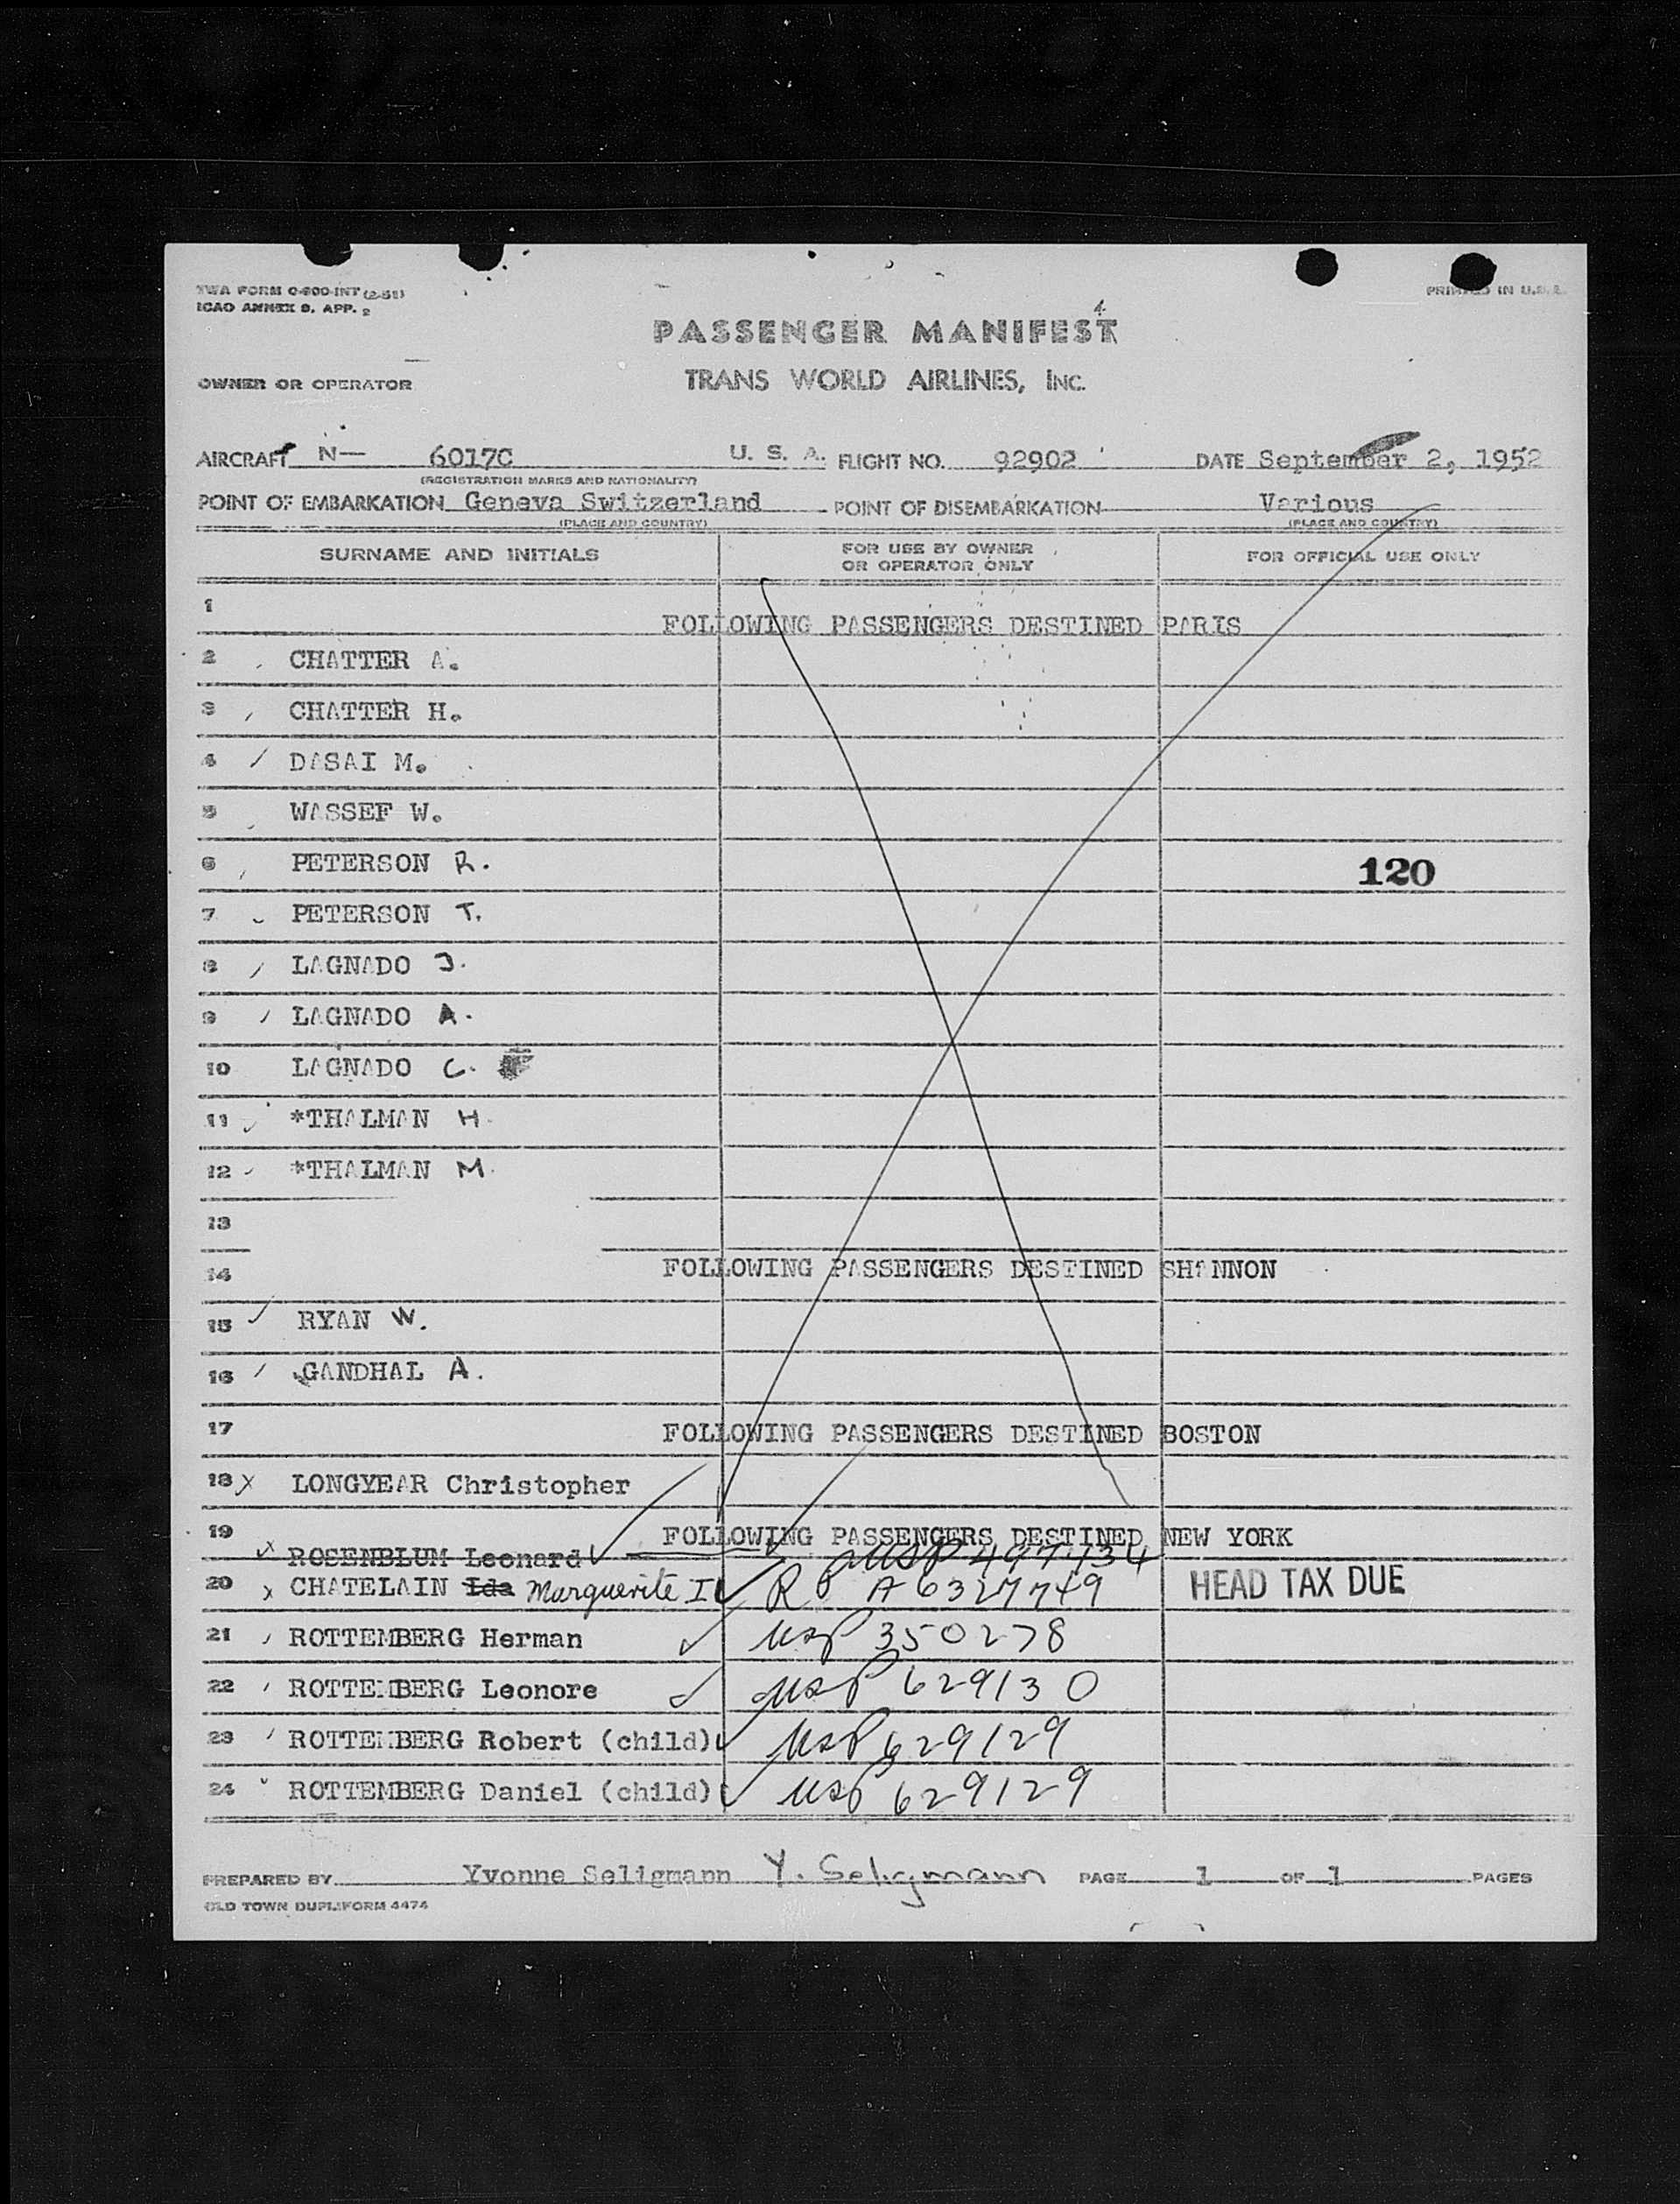 TWA FORM O-800-INT (2-51)
ICAO ANNEX 9, APP. 2
PRINTED IN U.S.A.
4
PASSENGER MANIFEST
OWNER OR OPERATOR TRANS WORLD AIRLINES, INC.
AIRCRAFT N— 6017C U. S. A. FLIGHT NO. 92902 DATE September 2, 1952
(REGISTRATION MARKS AND NATIONALITY)
POINT OF EMBARKATION Geneva Switzerland POINT OF DISEMBARKATION Various
(PLACE AND COUNTRY) (PLACE AND COUNTRY)
SURNAME AND INITIALS FOR USE BY OWNER OR OPERATOR ONLY FOR OFFICIAL USE ONLY
1 FOLLOWING PASSENGERS DESTINED PARIS
2 CHATTER A.
3 CHATTER H.
4 DASAI M.
5 WASSEF W.
6 PETERSON R. 120
7 PETERSON T.
8 LAGNADO J.
9 LAGNADO A.
10 LAGNADO C.
11 *THALMAN H.
12 *THALMAN M.
13
14 FOLLOWING PASSENGERS DESTINED SHANNON
15 RYAN W.
16 GANDHAL A.
17 FOLLOWING PASSENGERS DESTINED BOSTON
18 X LONGYEAR Christopher
19 FOLLOWING PASSENGERS DESTINED NEW YORK
X ROSENBLUM Leonard USP 497434
20 X CHATELAIN Ida Marguerite I RP A 6327749 HEAD TAX DUE
21 ROTTEMBERG Herman USP 350278
22 ROTTEMBERG Leonore USP 629130
23 ROTTEMBERG Robert (child) USP 629129
24 ROTTEMBERG Daniel (child) USP 629129
PREPARED BY Yvonne Seligmann Y. Seligmann PAGE 1 OF 1 PAGES
OLD TOWN DUPLIFORM 4474